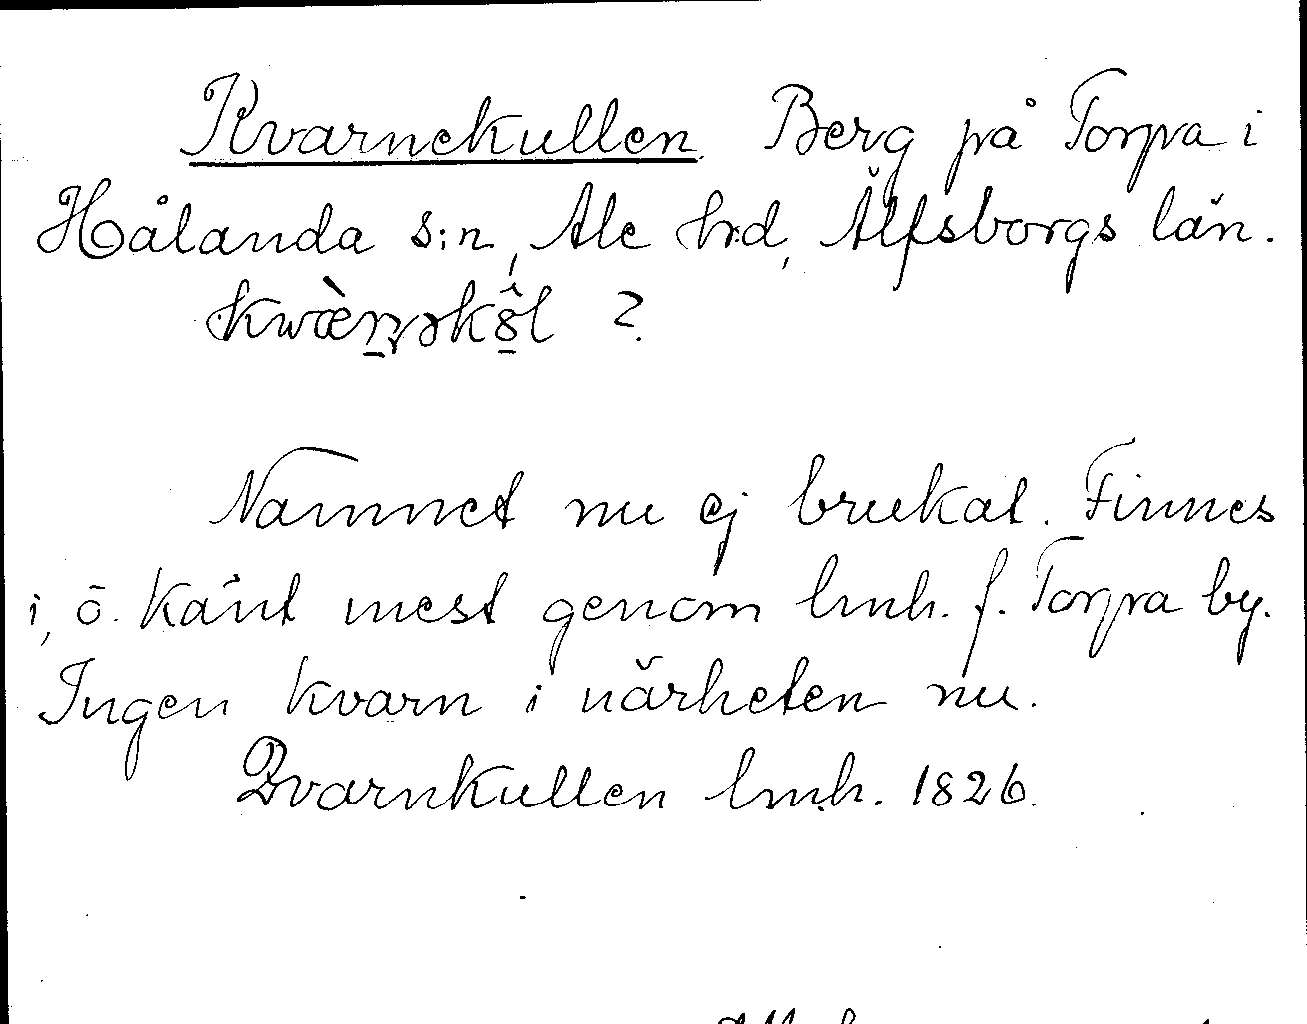 Kvarnekullen. Berg på Torpa i
Hålanda s:n, Ale hrd, Älfsborgs län.
?
Namnet nu ej brukat. Finnes
i, ö. Känt mest genom lmh. f. Torpa by.
Ingen kvarn i närheten nu.
Qvarnkullen lmh. 1826.